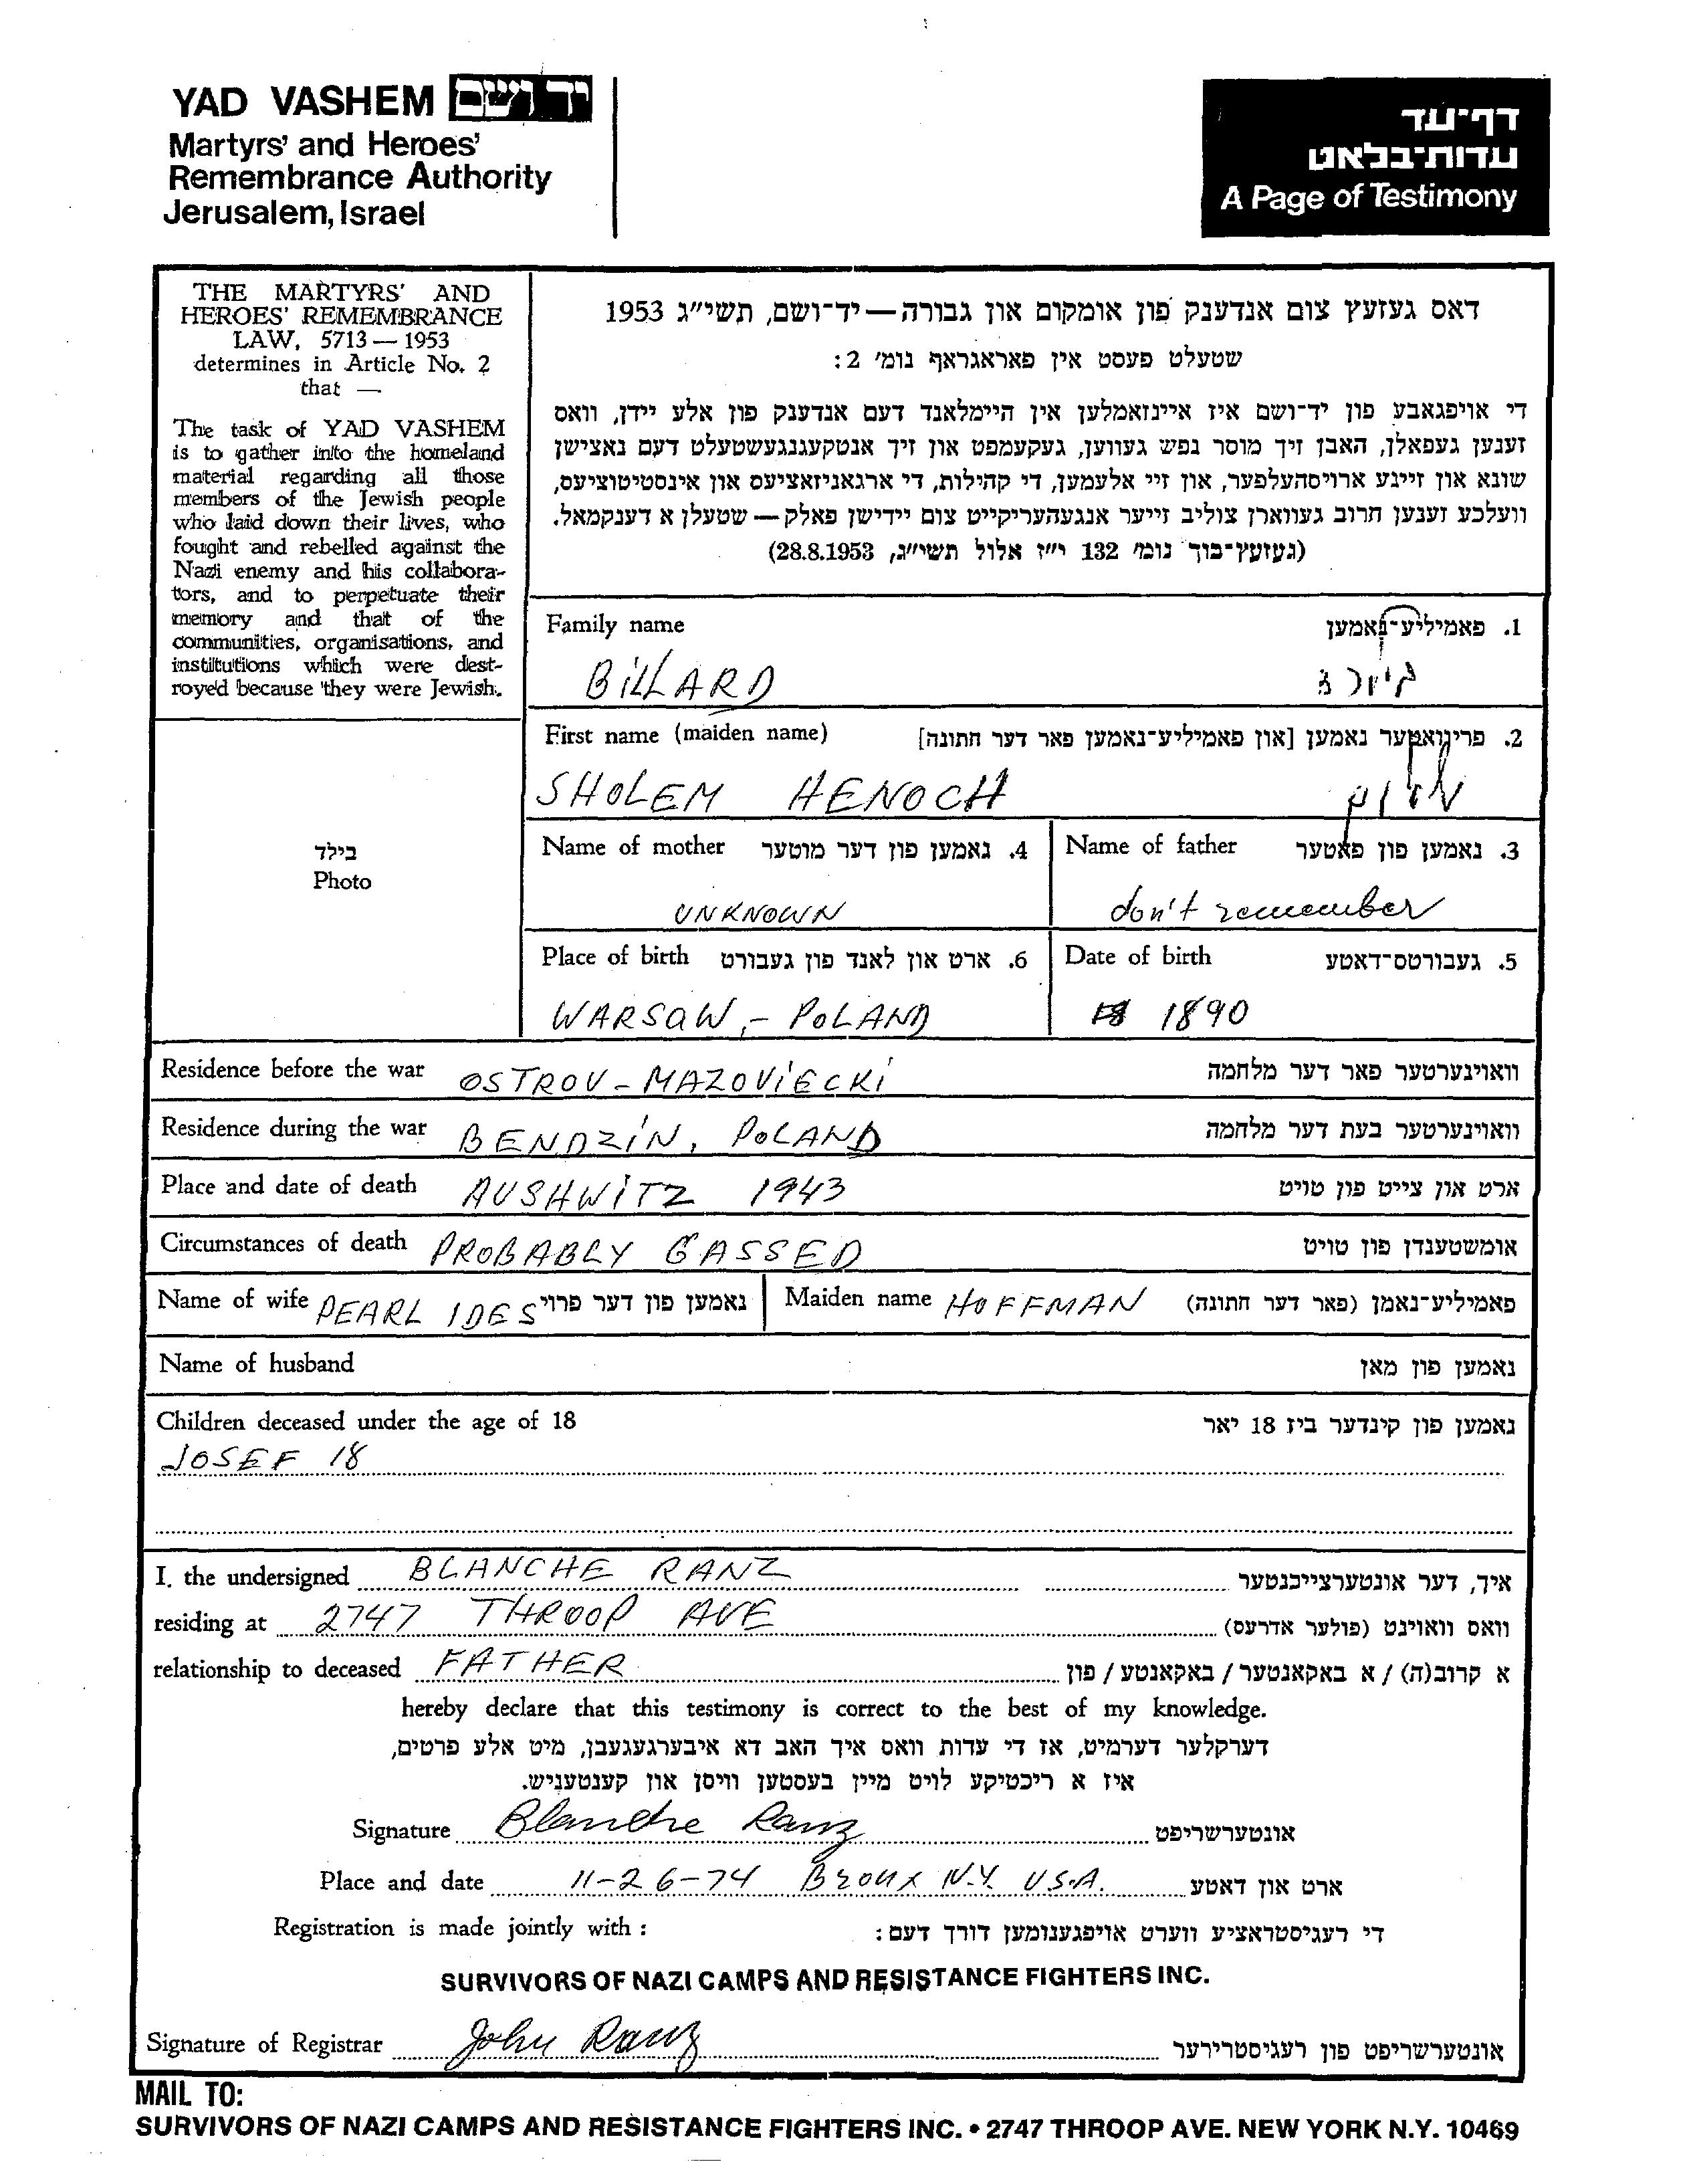 YAD VASHEM יד ושם
Martyrs' and Heroes'
Remembrance Authority
Jerusalem, Israel
דף־עד
עדות־בלאט
A Page of Testimony
THE MARTYRS' AND
HEROES' REMEMBRANCE
LAW, 5713 — 1953
determines in Article No. 2
that —
The task of YAD VASHEM
is to gather into the homeland
material regarding all those
members of the Jewish people
who laid down their lives, who
fought and rebelled against the
Nazi enemy and his collabora-
tors, and to perpetuate their
memory and that of the
communities, organisations, and
institutions which were dest-
royed because they were Jewish.
דאס געזעץ צום אנדענק פון אומקום און גבורה — יד־ושם, תשי״ג 1953
שטעלט פעסט אין פאראגראף נומ׳ 2:
די אויפגאבע פון יד־ושם איז איינזאמלען אין היימלאנד דעם אנדענק פון אלע יידן, וואס
זענען געפאלן, האבן זיך מוסר נפש געווען, געקעמפט און זיך אנטקעגנגעשטעלט דעם נאצישן
שונא און זיינע ארויסהעלפער, און זיי אלעמען, די קהילות, די ארגאניזאציעס און אינסטיטוציעס,
וועלכע זענען חרוב געווארן צוליב זייער אנגעהעריקייט צום יידישן פאלק — שטעלן א דענקמאל.
(געזעץ־בוך נומ׳ 132 י״ז אלול תשי״ג, 28.8.1953)
Family name 1. פאמיליע־נאמען
BILLARD
First name (maiden name) 2. פריוואטער נאמען [און פאמיליע־נאמען פאר דער חתונה]
SHOLEM HENOCH
Name of mother 4. נאמען פון דער מוטער
UNKNOWN
Name of father 3. נאמען פון פאטער
don't remember
Place of birth 6. ארט און לאנד פון געבורט
WARSAW, - POLAND
Date of birth 5. געבורטס־דאטע
1890
בילד
Photo
Residence before the war OSTROV - MAZOVIECKI וואוינערטער פאר דער מלחמה
Residence during the war BENDZIN, POLAND וואוינערטער בעת דער מלחמה
Place and date of death AUSHWITZ 1943 ארט און צייט פון טויט
Circumstances of death PROBABLY GASSED אומשטענדן פון טויט
Name of wife PEARL IDES נאמען פון דער פרוי Maiden name HOFFMAN פאמיליע־נאמן (פאר דער חתונה)
Name of husband נאמען פון מאן
Children deceased under the age of 18 נאמען פון קינדער ביז 18 יאר
JOSEF 18
I. the undersigned BLANCHE RANZ איך, דער אונטערצייכנטער
residing at 2747 THROOP AVE וואס וואוינט (פולער אדרעס)
relationship to deceased FATHER א קרוב(ה) / א באקאנטער / באקאנטע / פון
hereby declare that this testimony is correct to the best of my knowledge.
דערקלער דערמיט, אז די עדות וואס איך האב דא איבערגעגעבן, מיט אלע פרטים,
איז א ריכטיקע לויט מיין בעסטען וויסן און קענטעניש.
Signature Blanche Ranz אונטערשריפט
Place and date 11-26-74 Bronx N.Y. U.S.A. ארט און דאטע
Registration is made jointly with : די רעגיסטראציע ווערט אויפגענומען דורך דעם:
SURVIVORS OF NAZI CAMPS AND RESISTANCE FIGHTERS INC.
Signature of Registrar John Ranz אונטערשריפט פון רעגיסטרירער
MAIL TO:
SURVIVORS OF NAZI CAMPS AND RESISTANCE FIGHTERS INC. • 2747 THROOP AVE. NEW YORK N.Y. 10469